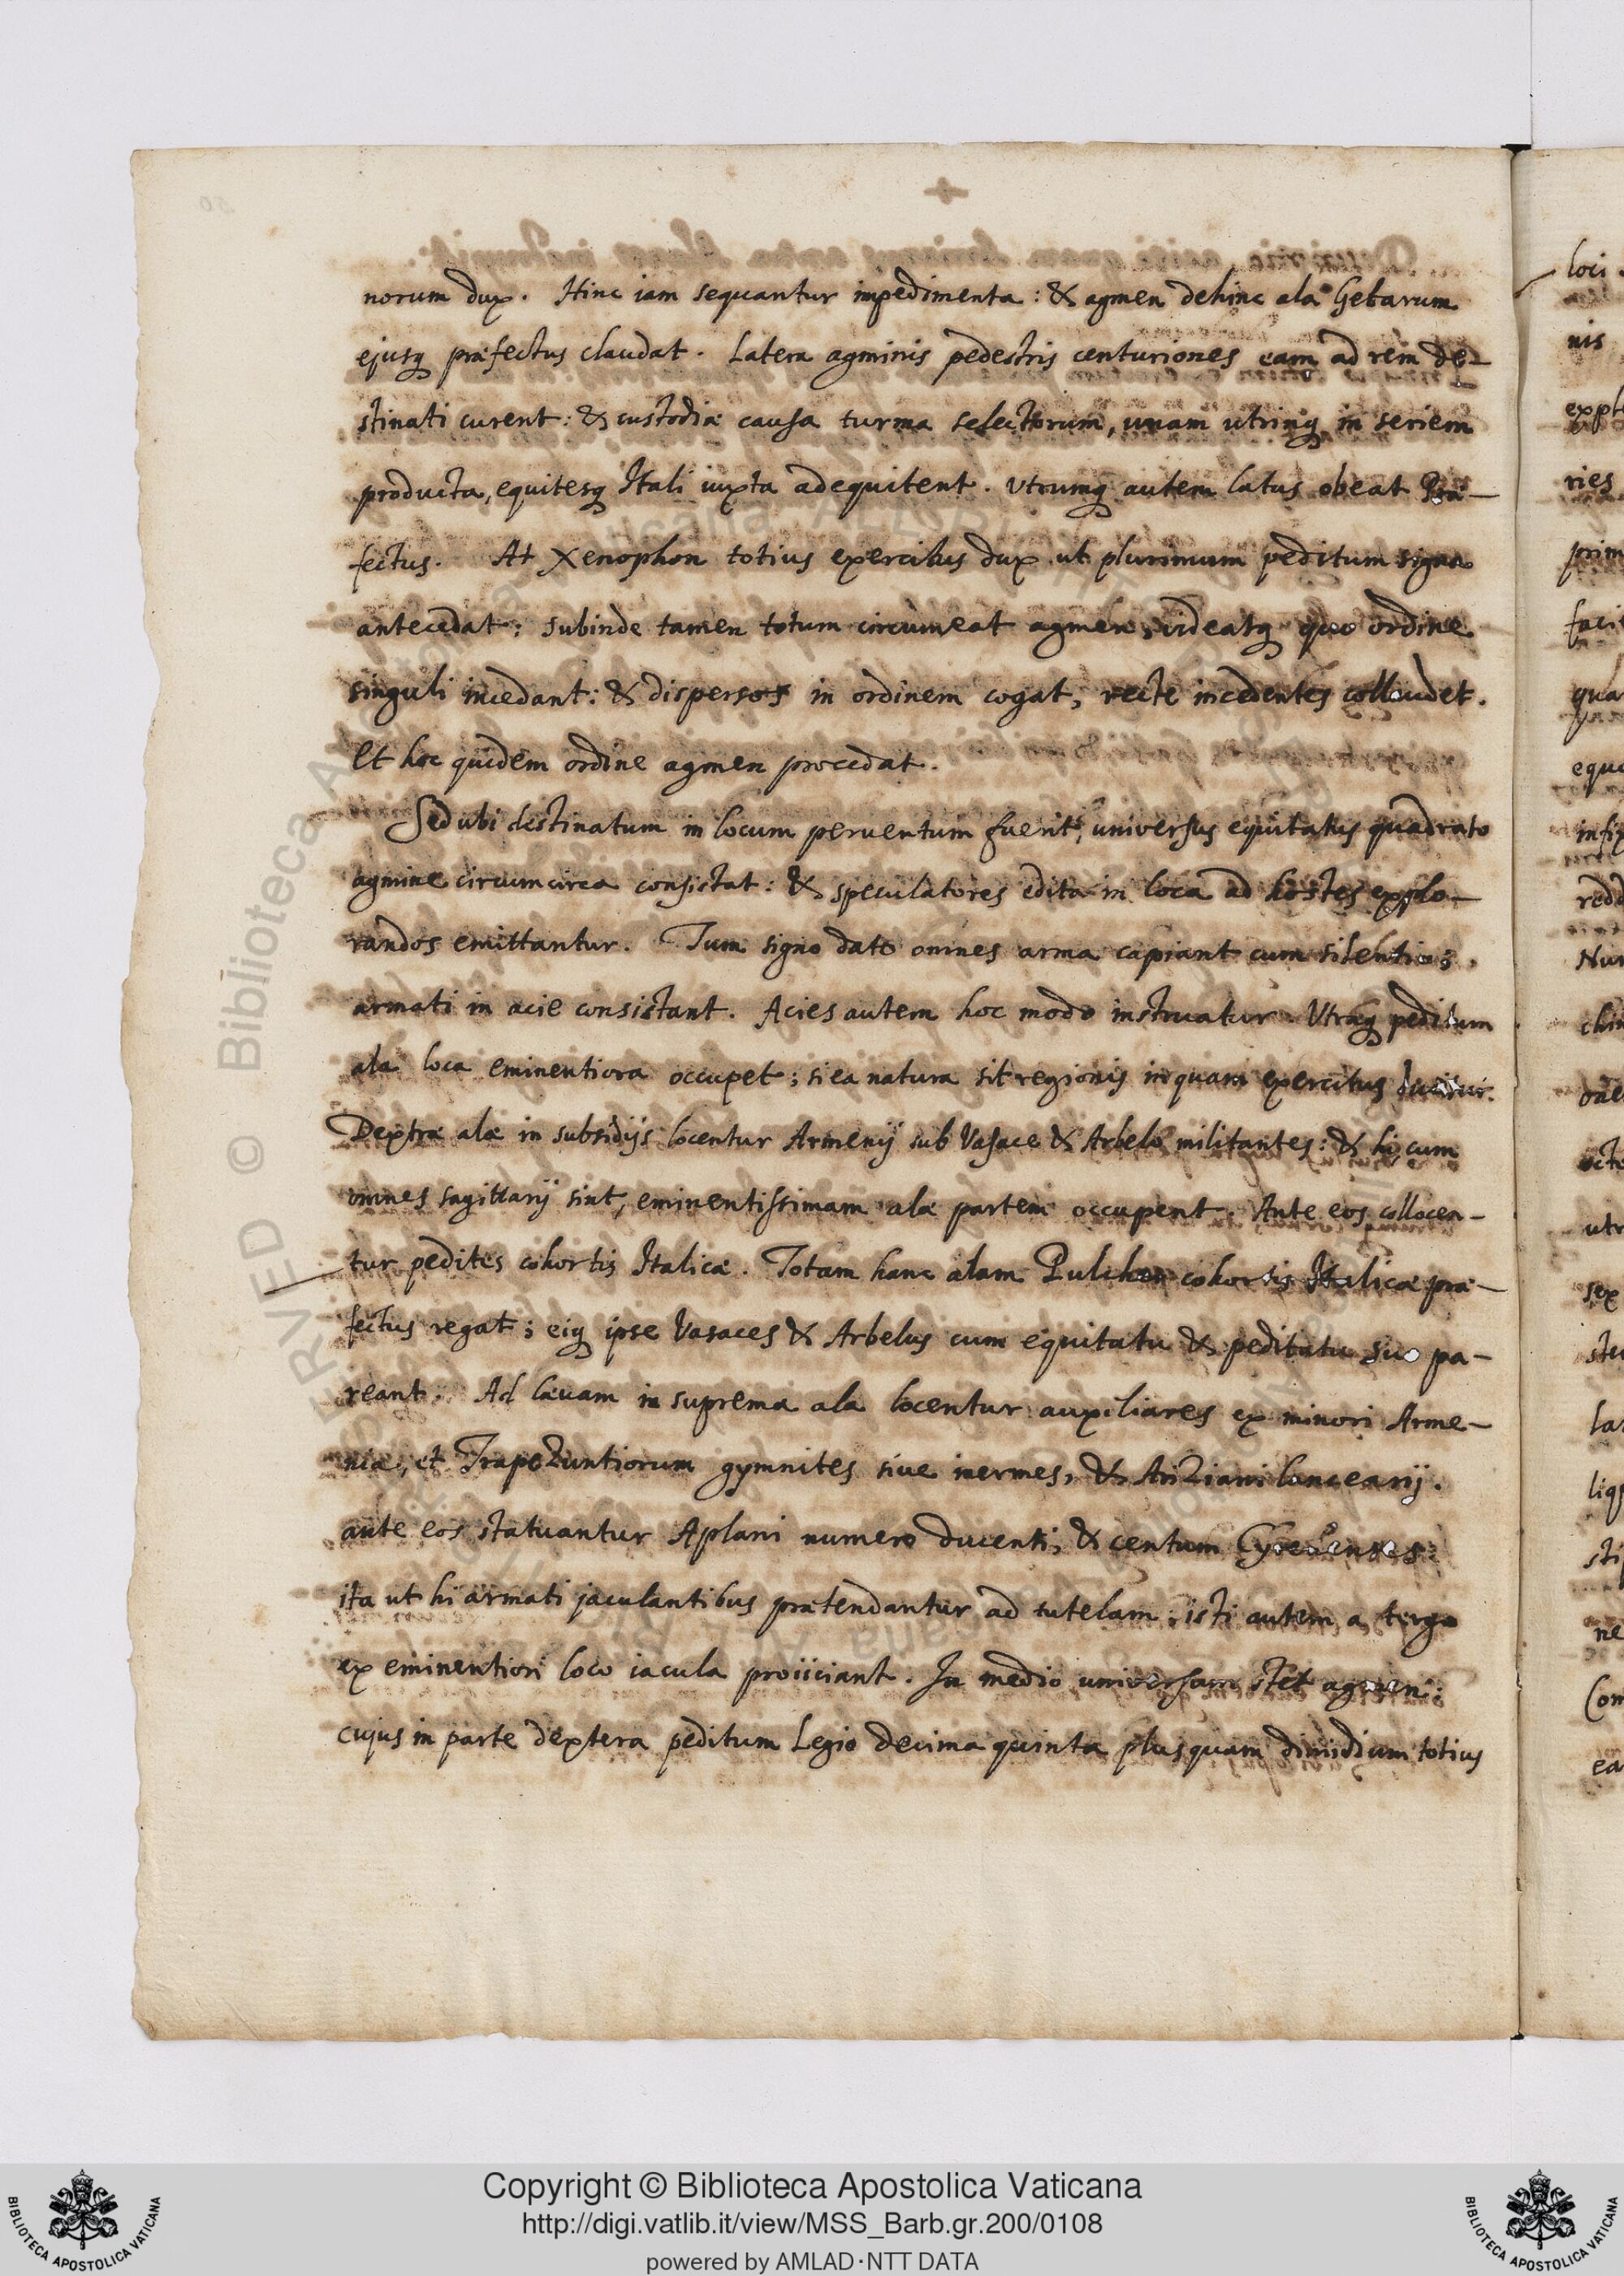 norum dux. Hinc iam sequantur impedimenta: & agmen dehinc ala Getarum
ejusq præfectus claudat. Latera agminis pedestris centuriones eam ad rem de-
stinati curent: & custodiæ causa turma selectorum, unam utrinq in seriem
producta, equitesq Itali iuxta adequitent. Utrumq autem latus obeat Præ-
fectus. At Xenophon totius exercitus dux ut plurimum peditum signa
antecedat: subinde tamen totum circumeat agmen, videatq quo ordine
singuli incedant: & dispersos in ordinem cogat, recte incedentes collaudet.
Et hoc quidem ordine agmen procedat.
Sed ubi destinatum in locum perventum fuerit, universus equitatus quadrato
agmine circumcirca consistat: & speculatores edita in loca ad hostes explo-
randos emittantur. Tum signo dato omnes arma capiant cum silentio;
armati in acie consistant. Acies autem hoc modo instruatur. Utraq peditum
ala loca eminentiora occupet; si ea natura sit regionis in quam exercitus ducitur.
Dextræ alæ in subsidijs locentur Armenij sub Vasace & Arbelo militantes: & hi, cum
omnes sagittarij sint, eminentissimam alæ partem occupent. Ante eos collocen-
tur pedites cohortis Italicæ. Totam hanc alam Pulcher cohortis Italicæ præ-
fectus regat; eiq ipse Vasaces & Arbelus cum equitatu & peditatu suo pa-
reant. Ad lævam in suprema ala locentur auxiliares ex minori Arme-
nia, et Trapezuntiorum gymnites sive inermes, & lancearij.
ante eos statuantur Aplani numero ducenti, & centum
ita ut hi armati jaculantibus prætendantur ad tutelam; isti autem a tergo
ex eminentiori loco iacula proiiciant. In medio universum stet agmen:
cujus in parte dextera peditum Legio decima quinta plusquam dimidium totius
loci
nis
expl
ries
prim
faci
qua
equ
redd
Nu
utr
sex
ste
la
ne
Con
ea
Copyright © Biblioteca Apostolica Vaticana
http://digi.vatlib.it/view/MSS_Barb.gr.200/0108
powered by AMLAD·NTT DATA
BIBLIOTECA APOSTOLICA VATICANA
BIBLIOTECA APOSTOLICA VATICANA